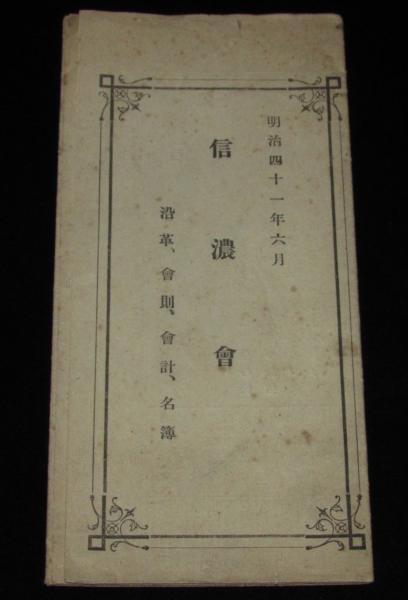 明治四十一年六月
信濃會
沿革、會則、會計、名簿